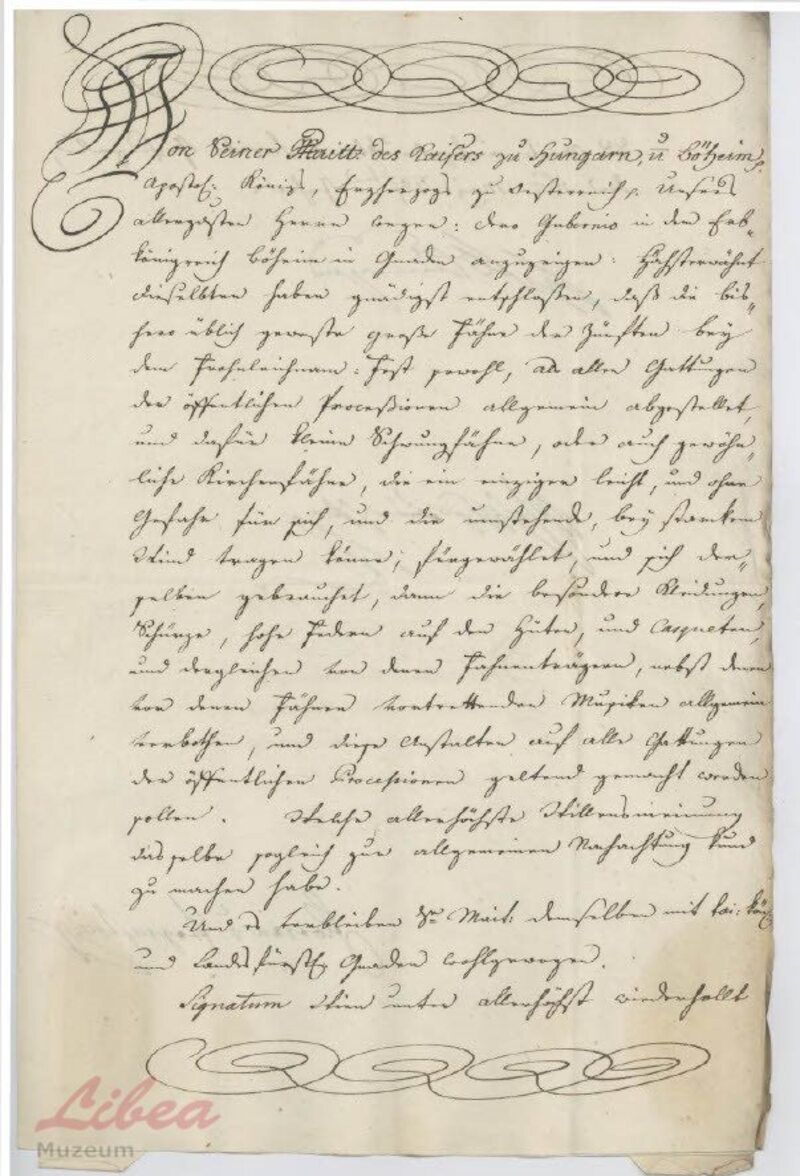 Von Seiner Maitt: des Kaisers zu Hungarn, u̅ Böheim p.
Apostol: Königs, Erzherzogs zu Oesterreich p. Unsers
allergdsten Herrn wegen: dero Gubernio in dem Erb„
königreich Böheim in Gnaden anzuzeigen: Höchsterwähnt
dieselbten haben gnädigst entschlossen, daß die bis„
hero üblich geweste große Fähne der Zünften bey
dem Frohnleichnam: Fest sowohl, als allen Gattungen
der öffentlichen Processionen allgemein abgestellet,
und dafür kleine Schwungfähne, oder auch gewöhn„
liche Kirchenfähne, die ein einziger leicht, und ohne
Gefahr für sich, und die umstehende, bey starkem
Wind tragen könne, fürgewählet, und sich der„
selben gebrauchet, dann die besondere Kleidungen,
Schürze, hohe Federn auf den Hüten, und Casqueten,
und dergleichen von denen Fahnenträgern, nebst denen
vor denen Fähnen vortrettenden Musiken allgemein
verbothen, und diese Anstalten auf alle Gattungen
der öffentlichen Processionen geltend gemacht werden
sollen. Welche allerhöchste Willensmeinung
dasselbe sogleich zur allgemeinen Nachachtung kund
zu machen habe.
Und es verbleiben Sr Mait: demselben mit kai: kön
und Landesfürstl Gnaden wohlgewogen.
Signatum Wien unter allerhöchst wiederhollt
Libea
Muzeum